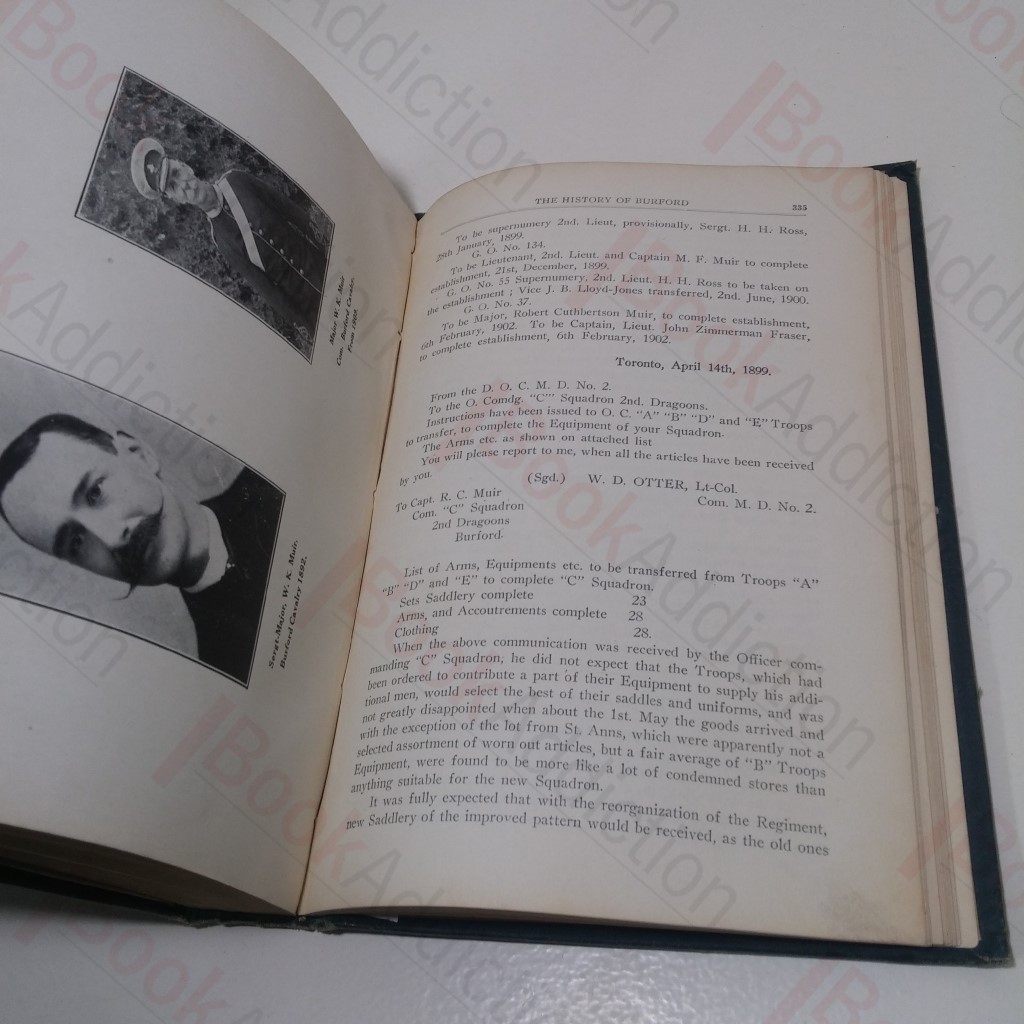 Major W. K. Muir
Com. Burford Cavalry
From 1908.
Sergt-Major, W. K. Muir.
Burford Cavalry 1892.
THE HISTORY OF BURFORD 335
To be supernumery 2nd. Lieut, provisionally, Sergt. H. H. Ross,
28th January, 1899.
G. O. No. 134.
To be Lieutenant, 2nd. Lieut. and Captain M. F. Muir to complete
establishment, 21st, December, 1899.
G. O. No. 55 Supernumery, 2nd. Lieut. H. H. Ross to be taken on
the establishment ; Vice J. B. Lloyd-Jones transferred, 2nd. June, 1900.
G. O. No. 37.
To be Major, Robert Cuthbertson Muir, to complete establishment,
6th February, 1902. To be Captain, Lieut. John Zimmerman Fraser,
to complete establishment, 6th February, 1902.
Toronto, April 14th, 1899.
From the D. O. C. M. D. No. 2.
To the O. Comdg. "C" Squadron 2nd. Dragoons.
Instructions have been issued to O. C. "A" "B" "D" and "E" Troops
to transfer, to complete the Equipment of your Squadron.
The Arms etc. as shown on attached list
You will please report to me, when all the articles have been received
by you.
(Sgd.) W. D. OTTER, Lt-Col.
Com. M. D. No. 2.
To Capt. R. C. Muir
Com. "C" Squadron
2nd Dragoons
Burford.
List of Arms, Equipments etc. to be transferred from Troops "A"
"B" "D" and "E" to complete "C" Squadron.
Sets Saddlery complete 23
Arms, and Accoutrements complete 28
Clothing 28.
When the above communication was received by the Officer com-
manding "C" Squadron, he did not expect that the Troops, which had
been ordered to contribute a part of their Equipment to supply his addi-
tional men, would select the best of their saddles and uniforms, and was
not greatly disappointed when about the 1st. May the goods arrived and
with the exception of the lot from St. Anns, which were apparently not a
selected assortment of worn out articles, but a fair average of "B" Troops
Equipment, were found to be more like a lot of condemned stores than
anything suitable for the new Squadron.
It was fully expected that with the reorganization of the Regiment,
new Saddlery of the improved pattern would be received, as the old ones
BookAddiction